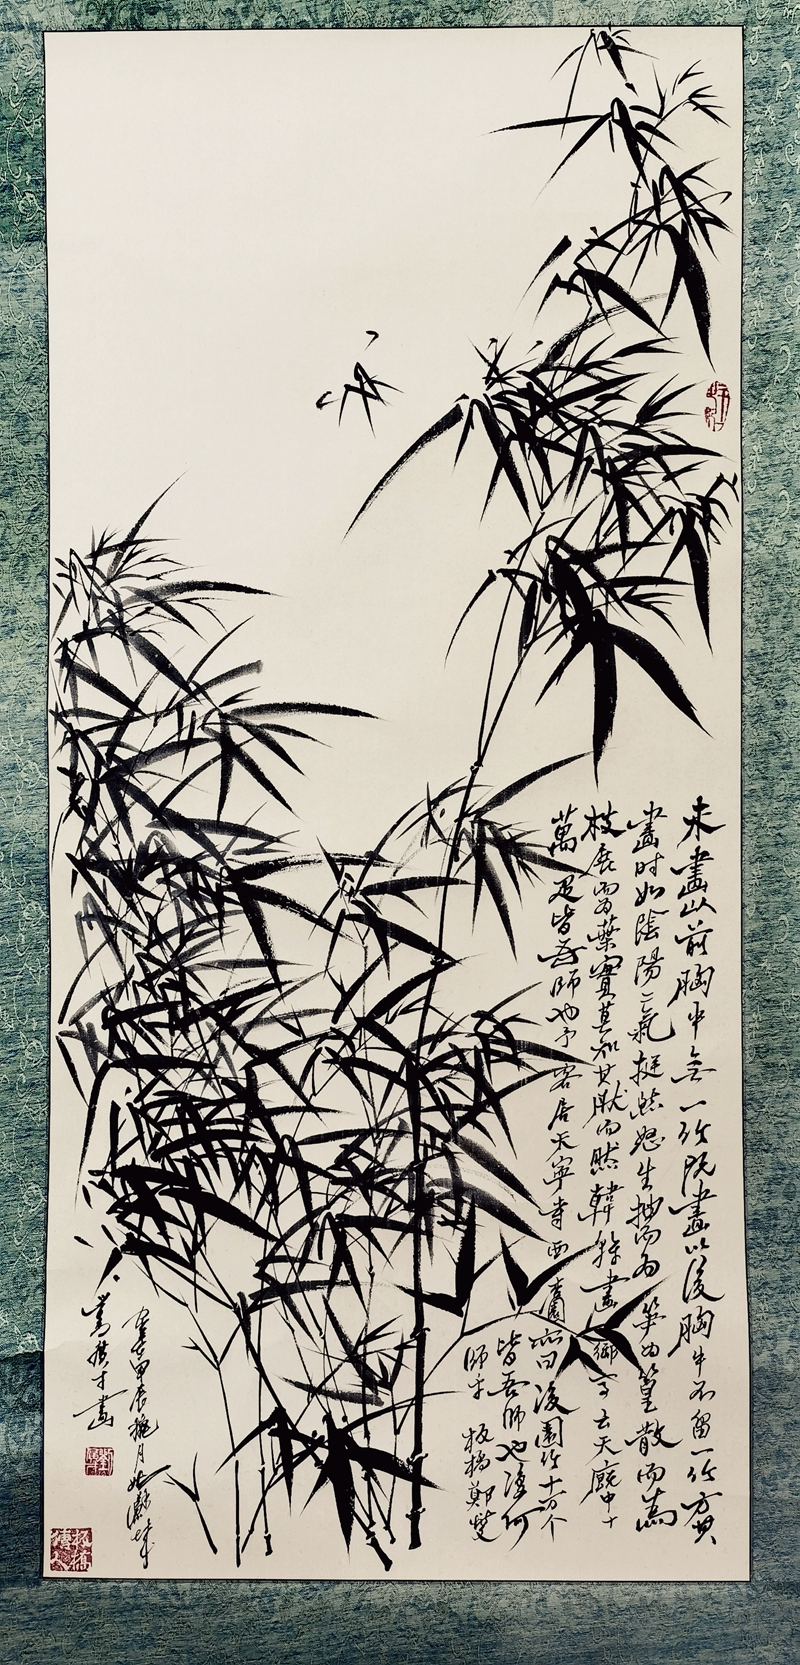 未畫以前胸中無一竹既畫以後胸中不留一竹方其
畫時如陰陽二氣挺然怒生抽而為笋為篁散而為
枝展而為葉實莫知其然而然韓幹畫御馬云天廄中十
萬疋皆吾師也予客居天寧寺西
園亦曰後園竹十万个
皆吾師也復何
師乎 板橋鄭燮
甲辰桃月
才畫